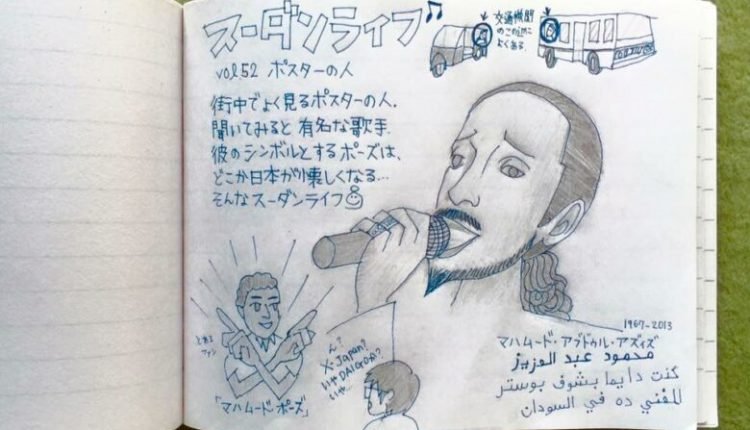 スーダンライフ♪
vol.52 ポスターの人
交通機関
のこのinに
よくある。
街中でよく見るポスターの人。
聞いてみると有名な歌手。
彼のシンボルとするポーズは、
どこか日本が懐しくなる…
そんなスーダンライフ
とある
ファン
「マハムード・ポーズ」
ん?
X-Japan?
いやDAIGOか?
いや…
1967-2013
マハムード・アブドゥル・アズィズ
محمود عبد العزيز
كنت دايما بشوف بوستر
للمغني ده في السودان